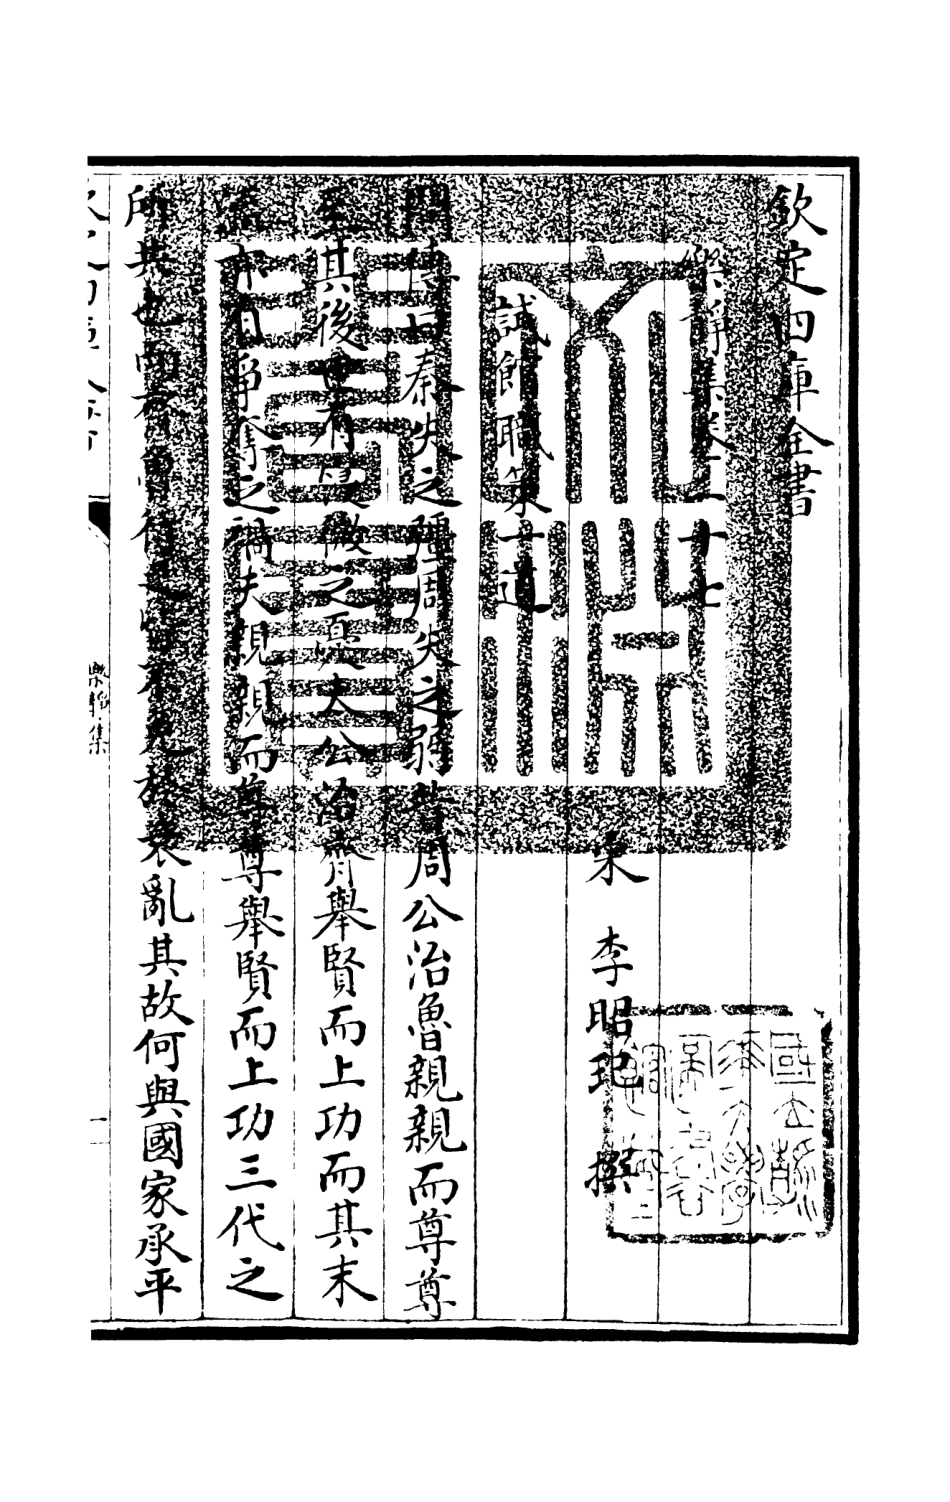 欽定四庫全書
樂靜集卷二十七
宋 李昭玘 撰
試館職策一道
問傳曰秦失之彊周失之弱昔周公治魯親親而尊尊
至其後世有寖微之憂太公治齊舉賢而上功而其末
流亦有爭奪之禍夫親親而尊尊舉賢而上功三代之
所共也而齊魯行之皆不免於衰亂其故何與國家承平
樂靜集